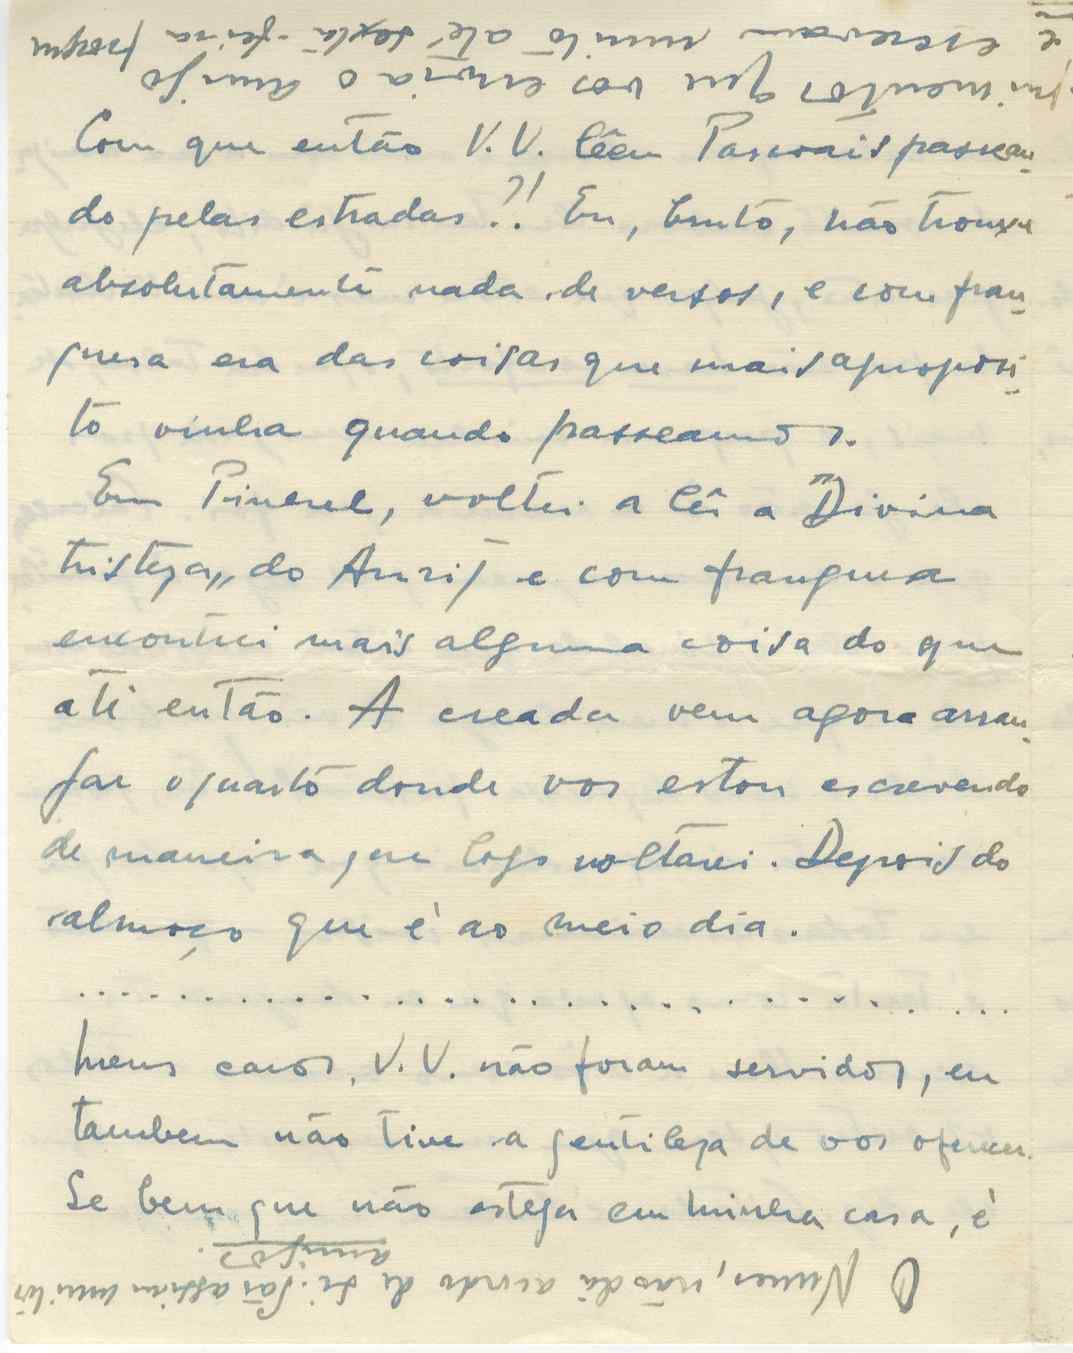 primentos que vos envia o amigo
e escrevam muito até sexta-feira porque
Com que então V.V. lêem Pascoais passean-
do pelas estradas?! Eu, bruto, não trouxe
absolutamente nada de versos, e com fran-
quesa era das coisas que mais aproposi-
to vinha quando passeamos.
Em Pinhel, voltei a lêr a "Divina
tristeza" do e com franquesa
encontrei mais alguma coisa do que
até então. A creada vem agora arran-
jar o quarto donde vos estou escrevendo
de maneira que logo voltarei. Depois do
almoço que é ao meio dia.
....................................
Meus caros, V.V. não foram servidos, eu
tambem não tive a gentileza de vos oferecer.
Se bem que não esteja em minha casa, é
O Nunes, não dá acordo de si. São assim muitos
amigos.